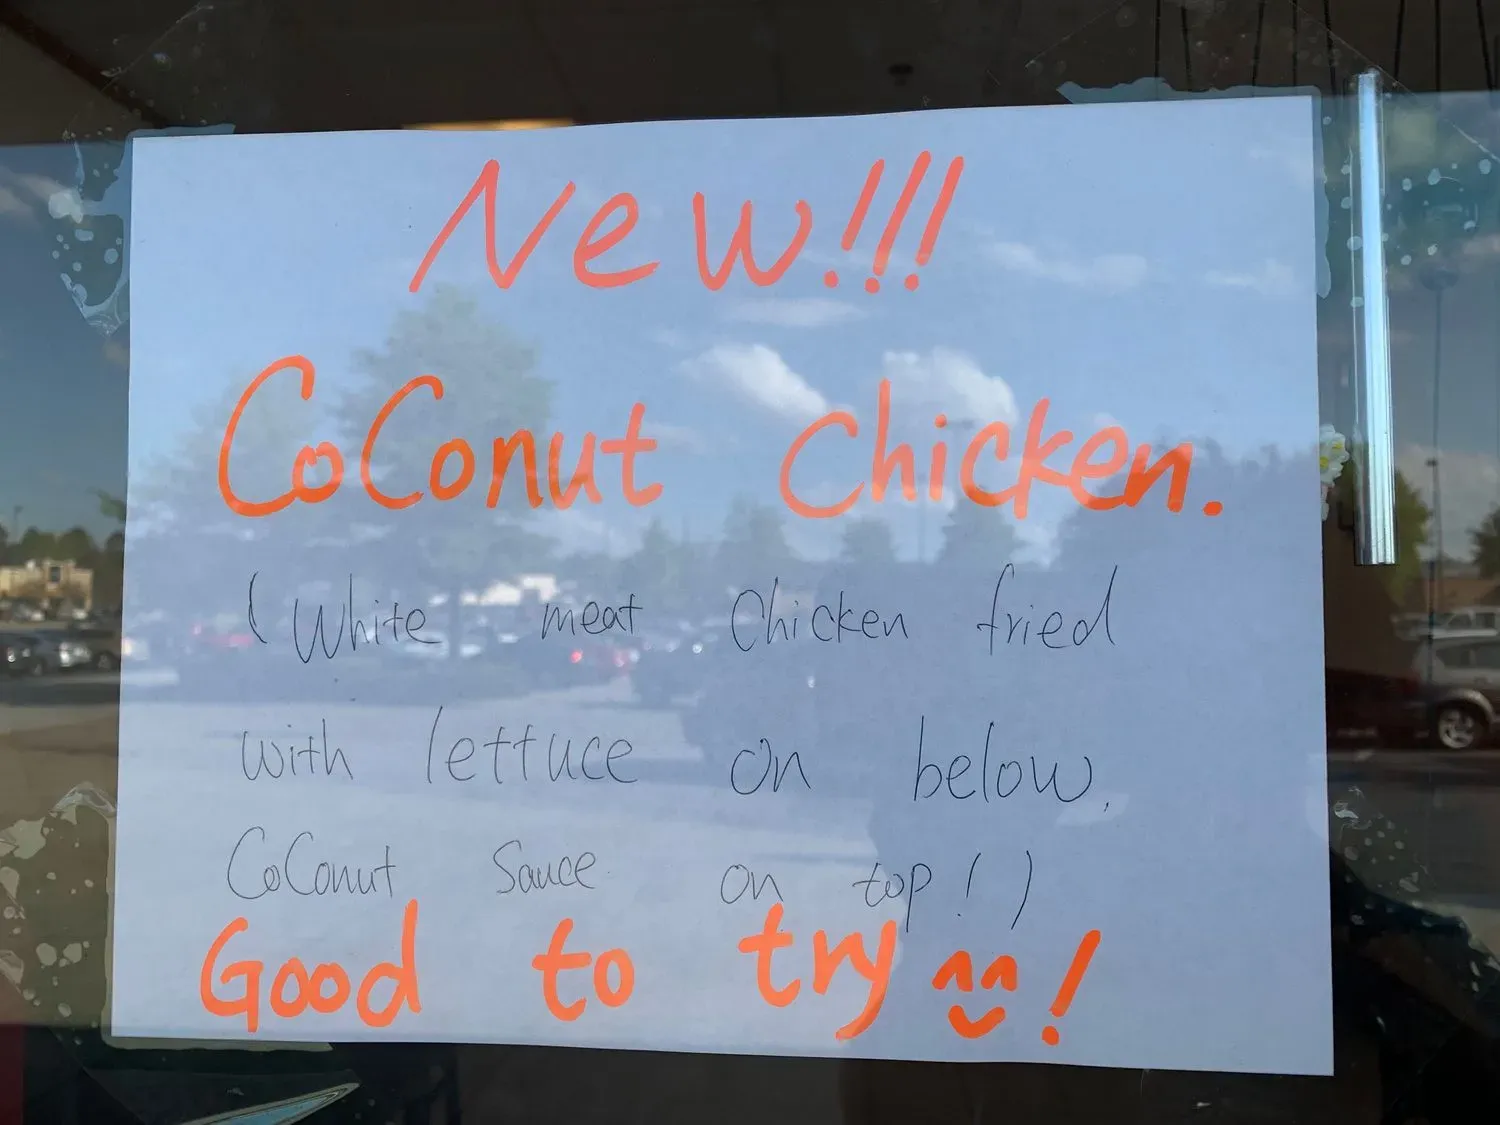 New!!!
CoConut Chicken.
(White meat Chicken fried
with lettuce on below,
CoConut Sauce on top!)
Good to try ^^!